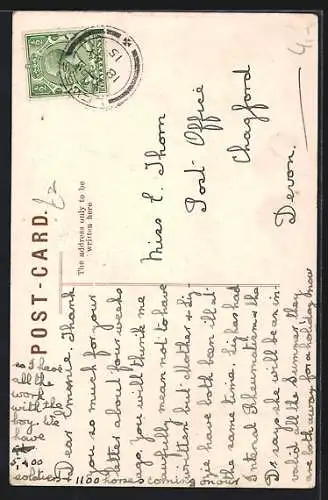 POST-CARD.
The address only to be
written here
£2
4.-
18
15
Miss E. Thorn
Post-Office
Chagford
Devon.
Dear Emmie. Thank
you so much for your
letter about four weeks
ago. You will think me
awfully mean not to have
written but Mother & Liz-
zie have both been ill at
the same time. Liz has had
Internal Rheumatism & the
Dr says she will be an in-
valid all the Summer. They
are both away for a holiday now
so I have
all the
work
with the
boy. We
have
5,400
soldiers & 1100 horses coming in our